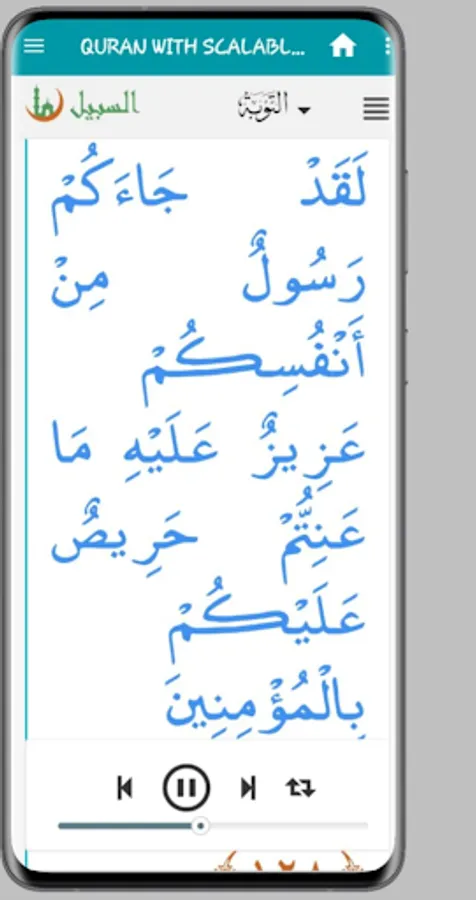 QURAN WITH SCALABL...
السبيل
التَّوْبَة
لَقَدْ جَاءَكُمْ
رَسُولٌ مِنْ
أَنْفُسِكُمْ
عَزِيزٌ عَلَيْهِ مَا
عَنِتُّمْ حَرِيصٌ
عَلَيْكُمْ
بِالْمُؤْمِنِينَ